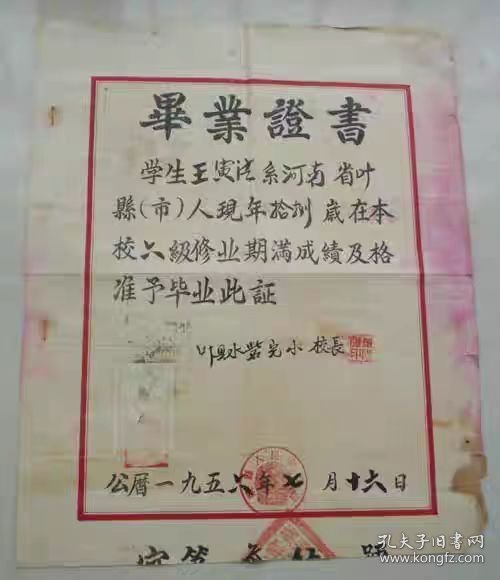 畢業證書
学生王寅法系河南省叶
縣(市)人現年拾捌歲在本
校六級修业期滿成績及格
准予毕业此証
叶县水寨完小校長
公曆一九五六年七月十六日
字第 号
孔夫子旧书网
www.kongfz.com